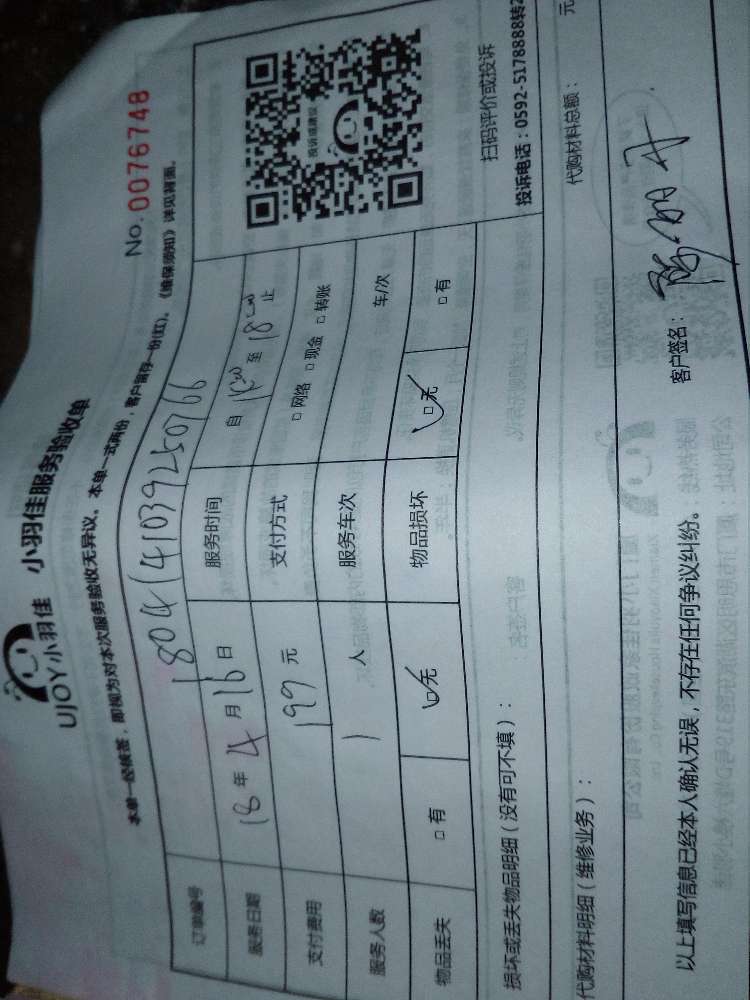 UJOY小羽佳 小羽佳服务验收单
No. 0076748
本单一经核签，即视为对本次服务验收无异议。本单一式两份，客户留存一份(红)。《维保须知》详见背面。
订单编号 1804141039250766
服务日期 18 年 4 月 16 日 服务时间 自 14:00 至 18:00 止
支付费用 199 元 支付方式 □ 网络 □ 现金 □ 转账
服务人数 1 人 服务车次 车/次
物品丢失 □ 有 □ 无 物品损坏 □ 无 □ 有
投诉或建议
扫码评价或投诉
投诉电话：0592-5178888转2
损坏或丢失物品明细（没有可不填）：
代购材料明细（维修业务）： 代购材料总额： 元
以上填写信息已经本人确认无误，不存在任何争议纠纷。 客户签名：